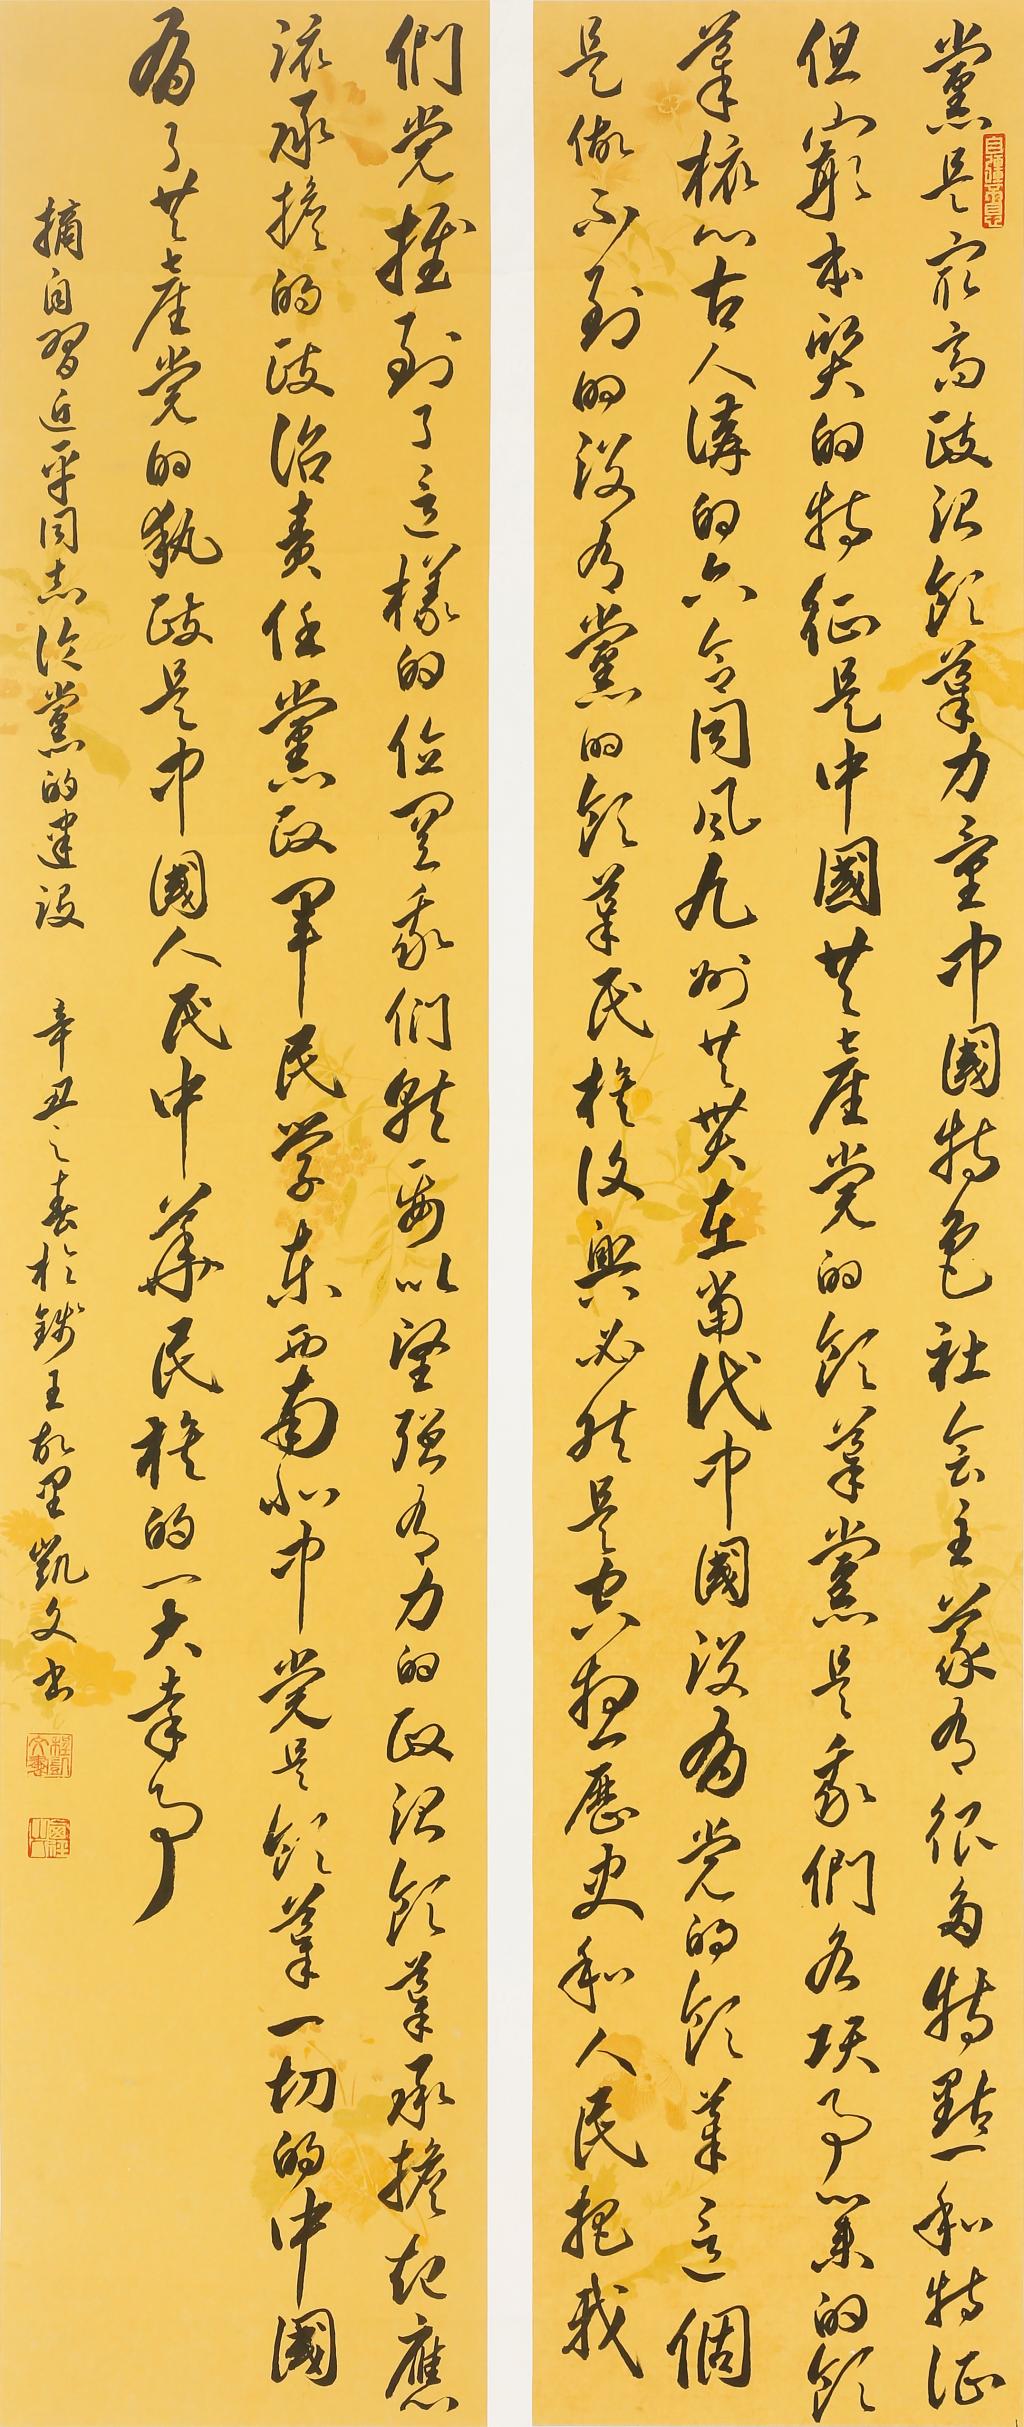 黨是最高政治領導力量中國特色社会主義有很多特點和特征
但最本質的特征是中國共產党的領導黨是我們各項事業的領
導核心古人講的六合同風九州共貫在當代中國没有党的領導這個
是做不到的没有黨的領導民族復興必然是空想歷史和人民把我
們党推到了這樣的位置我们就要以堅強有力的政治領導承擔起應
該承擔的政治責任黨政軍民学東西南北中党是領導一切的中國
有了共產党的執政是中國人民中華民族的一大幸事
摘自習近平同志论黨的建設 辛丑之春於錢王故里凱文书